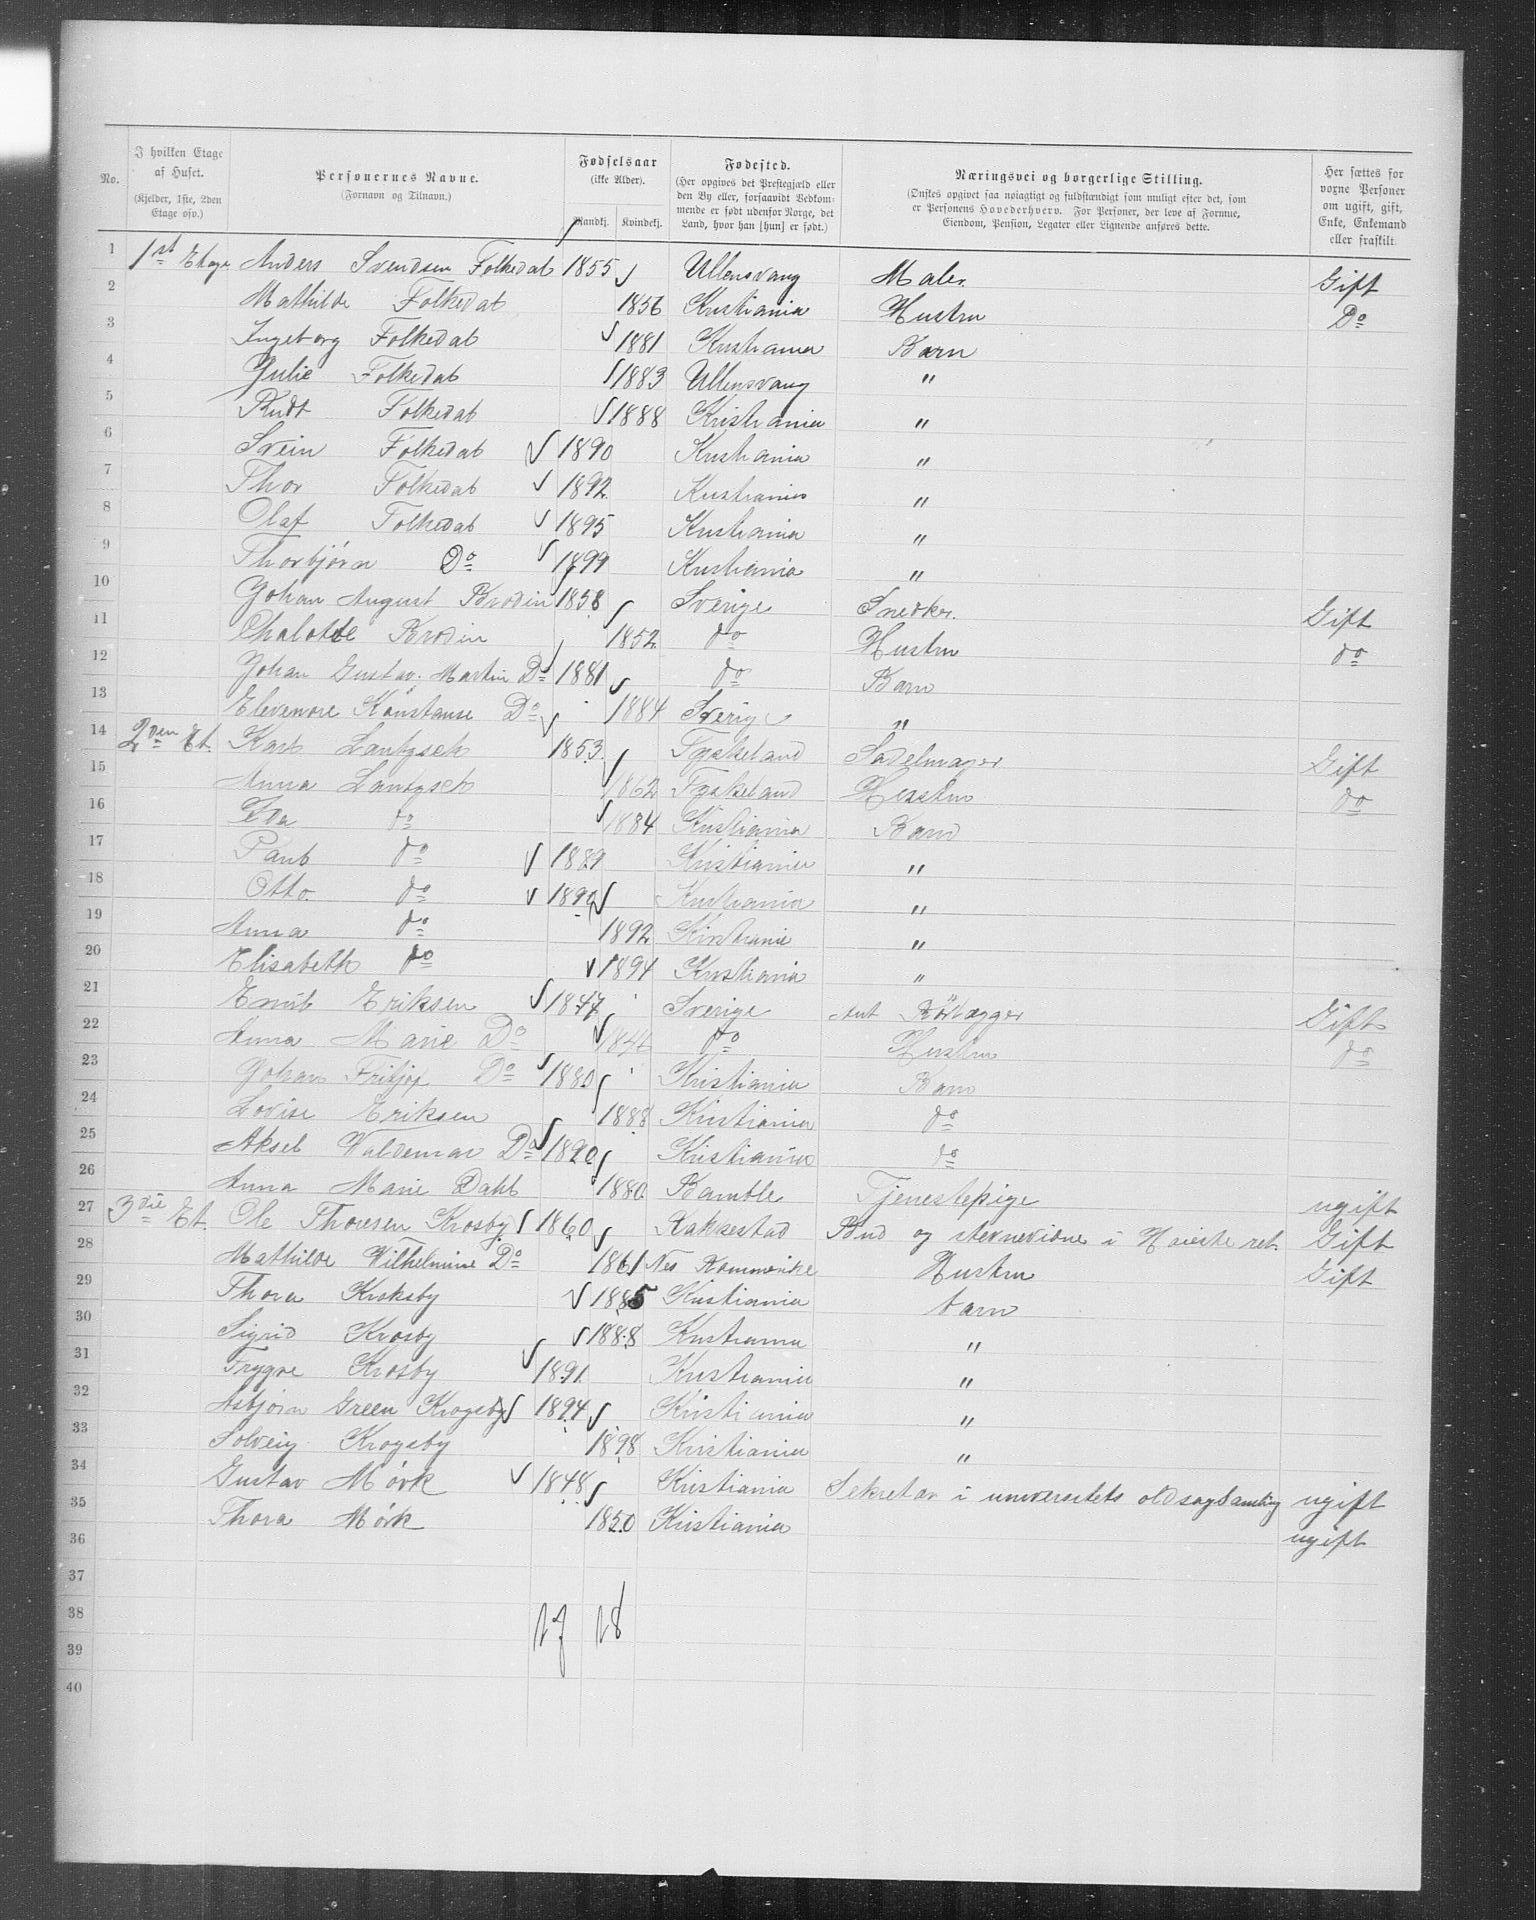 No.
I hvilken Etage
af Huset.
(Kjelder, 1ste, 2den
Etage osv.)
Personernes Navne.
(Fornavn og Tilnavn.)
Fødselsaar
(ikke Alder).
Mandkj. Kvindekj.
Fødested.
(Her opgives det Prestegjæld eller
den By eller, forsaavidt Vedkom-
mende er født udenfor Norge, det
Land, hvor han [hun] er født.)
Næringsvei og borgerlige Stilling.
(Ønskes opgivet saa nøiagtigt og fuldstændigt som muligt efter det, som
er Personens Hovederhverv. For Personer, der leve af Formue,
Eiendom, Pension, Legater eller Lignende anføres dette.
Her sættes for
voxne Personer
om ugift, gift,
Enke, Enkemand
eller fraskilt.
1 1st Etage Anders Svendsen Folkedal 1855 Ullensvang Maler Gift
2 Mathilde Folkedal 1856 Kristiania Hustru Do
3 Ingeborg Folkedal 1881 Kristiania Barn
4 Julie Folkedal 1883 Ullensvang "
5 Rudt Folkedal 1888 Kristiania "
6 Svein Folkedal 1890 Kristiania "
7 Thor Folkedal 1892 Kristiania "
8 Olaf Folkedal 1895 Kristiania "
9 Thorbjørn Do 1899 Kristiania "
10 Johan August Brodin 1858 Sverige Snedker. Gift
11 Chalotte Brodin 1852 do Hustru do
12 Johan Gustav. Martin Do 1881 do Barn
13 Elevenore Konstanse Do 1884 Sverige "
14 2den Et. Karl Lantzsch 1853 Tyskeland Sadelmager Gift
15 Anna Lantzsch 1862 Tyskeland Hustru do
16 Ida do 1884 Kristiania Barn
17 Paul do 1889 Kristiania "
18 Otto do 1890 Kristiania "
19 Anna do 1892 Kristiania "
20 Elisabeth do 1894 Kristiania "
21 Emil Eriksen 1847 Sverige Gift
22 Anna Marie Do 1846 do Hustru do
23 Johan Fritjof Do 1880 Kristiania Barn
24 Lovise Eriksen 1888 Kristiania do
25 Aksel Valdemar Do 1890 Kristiania do
26 Anna Marie Dahl 1880 Bamble Tjenestepige ugift
27 3die Et. Ole Thoresen Krosby 1860 Rakkestad Bud og stevnevidne i Høieste ret. Gift
28 Mathilde Vilhelmine Do 1861 Nes Rommerike Hustru Gift
29 Thora Kroksby 1885 Kristiania barn
30 Sigrid Krosby 1888 Kristiania "
31 Trygve Krosby 1891 Kristiania "
32 Asbjørn Green Krogsby 1894 Kristiania "
33 Solveig Krogsby 1898 Kristiania "
34 Gustav Mørk 1848 Kristiania Sekretær i universitets oldsagsamling ugift
35 Thora Mørk 1850 Kristiania ugift
36
37
38 17 18
39
40